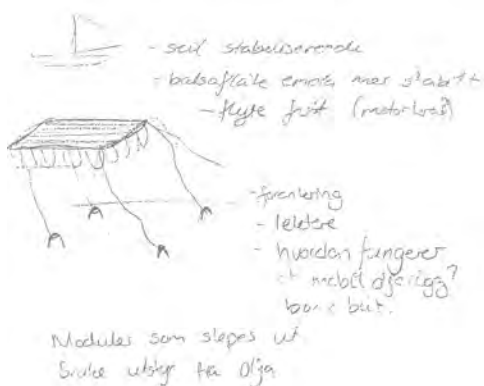 - seil stabiliserende
- balsaflåte enda mer stabilt
- flyte fritt (motorkraft)
- forankring
- lettere
- hvordan fungerer
et mobil oljerigg?
Modules som slepes ut
Bruke utstyr fra Olja